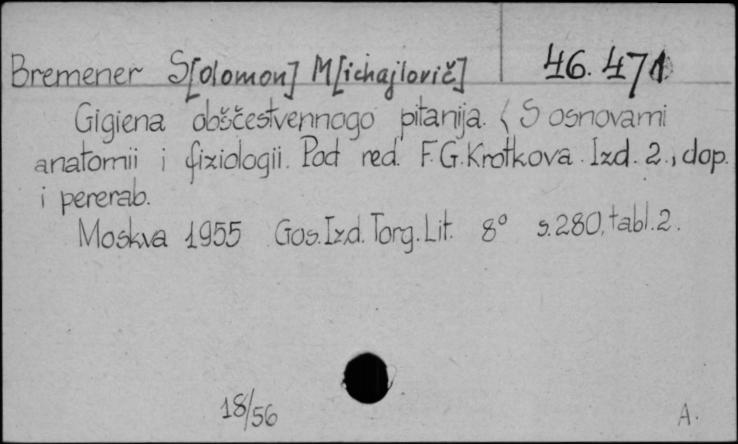 Bremener S[olomon] M[ichajlovič] 46.471
Gigiena obščestvennogo pitanija. (S osnovami
anatomii i fiziologii. Pod red. F.G.Krotkova. Izd. 2., dop.
i pererab.
Moskva 1955 Gos.Izd.Torg.Lit. 8° s.280, tabl.2.
18/56 A.